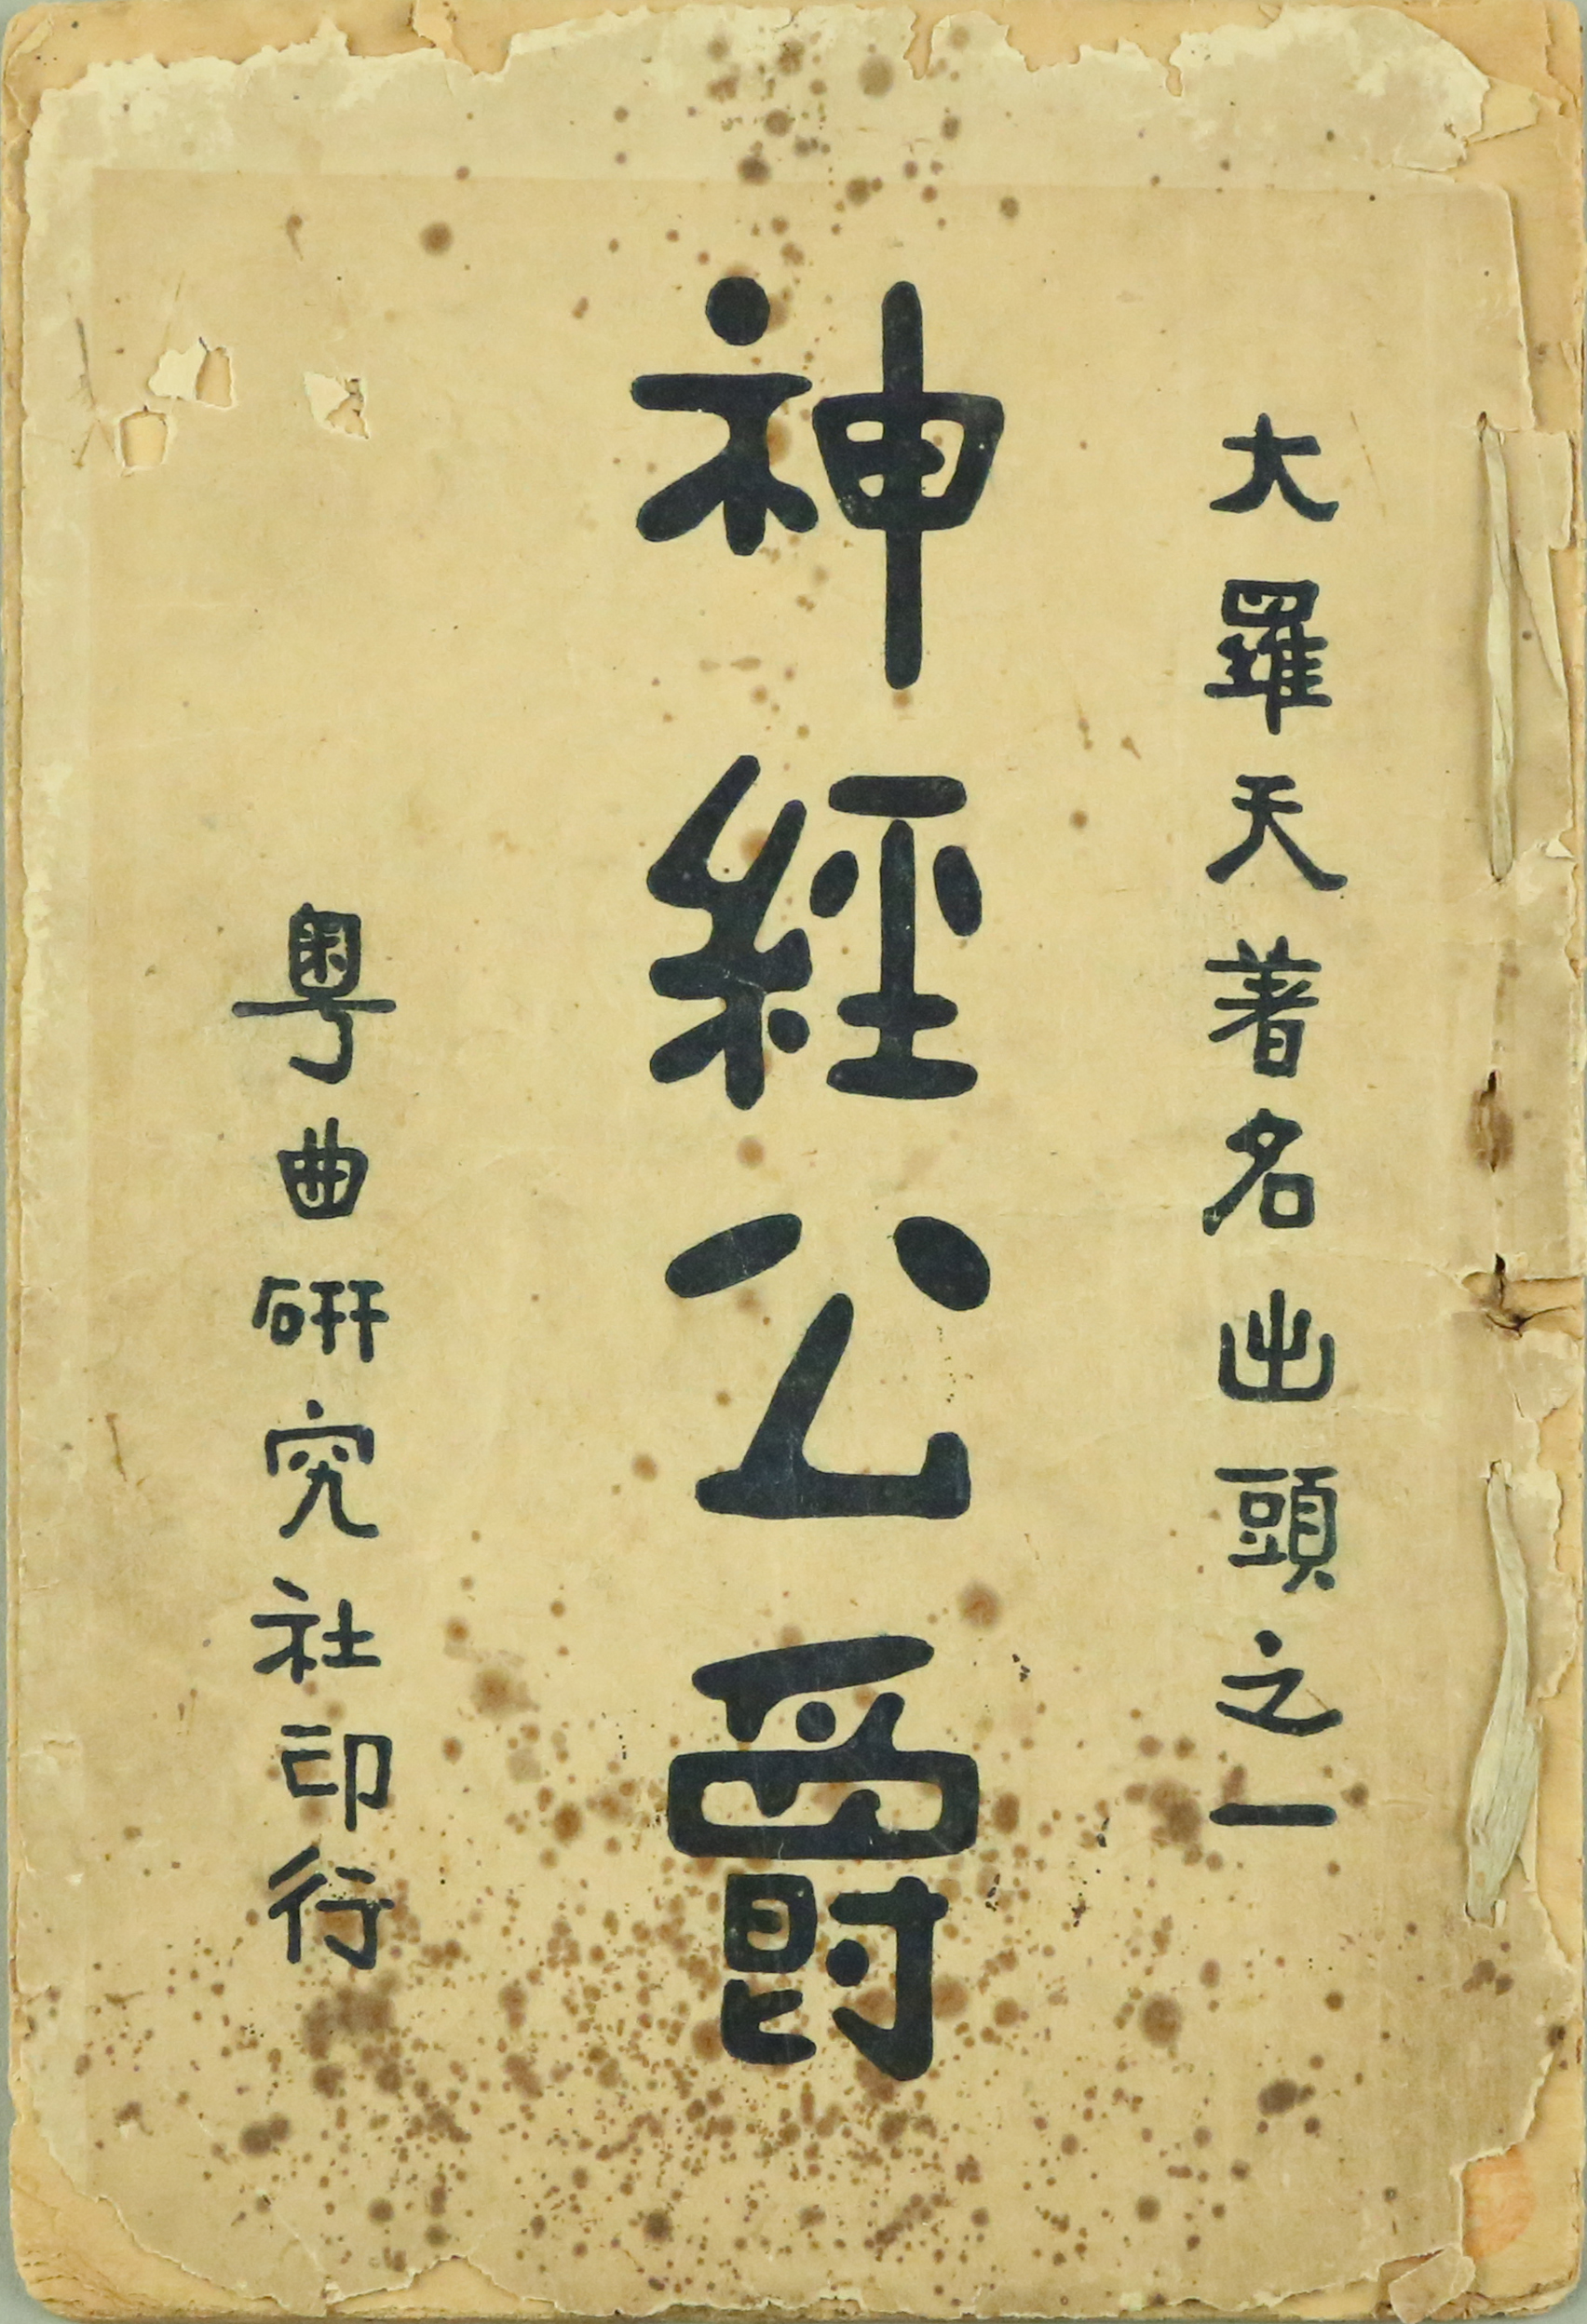 大羅天著名出頭之一
神經公爵
粵曲研究社印行